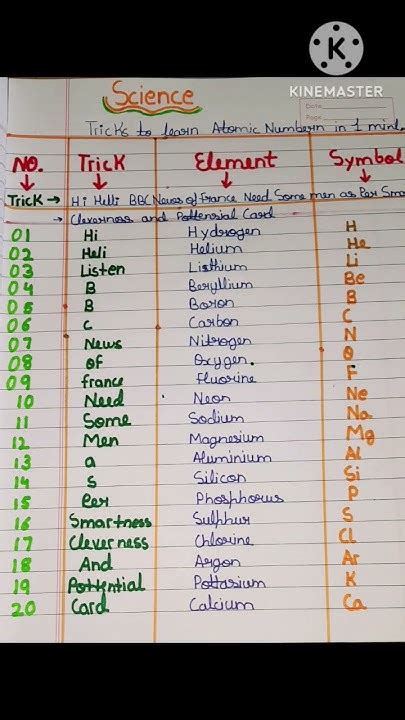 K
KINEMASTER
Science
Date
Page
Tricks to learn Atomic Numbern in 1 mint.
NO. Trick Element Symbol
Trick → Hi Helli BBC News of France Need Some men as Per Sma
→ Cleverness and Pottensial Card
01 Hi Hydrogen H
02 Heli Helium He
03 Listen Listhium Li
04 B Beryllium Be
05 B Boron B
06 C Carbon C
07 News Nitrogen N
08 of Oxygen. O
09 france Fluorine F
10 Need Neon Ne
11 Some Sodium Na
12 Men Magnesium Mg
13 a Aluminium Al
14 s Silicon Si
15 Per Phosphorus P
16 Smartness Sulphur S
17 Cleverness Chlorine Cl
18 And Argon Ar
19 Pottential Pottasium K
20 Card Calcium Ca